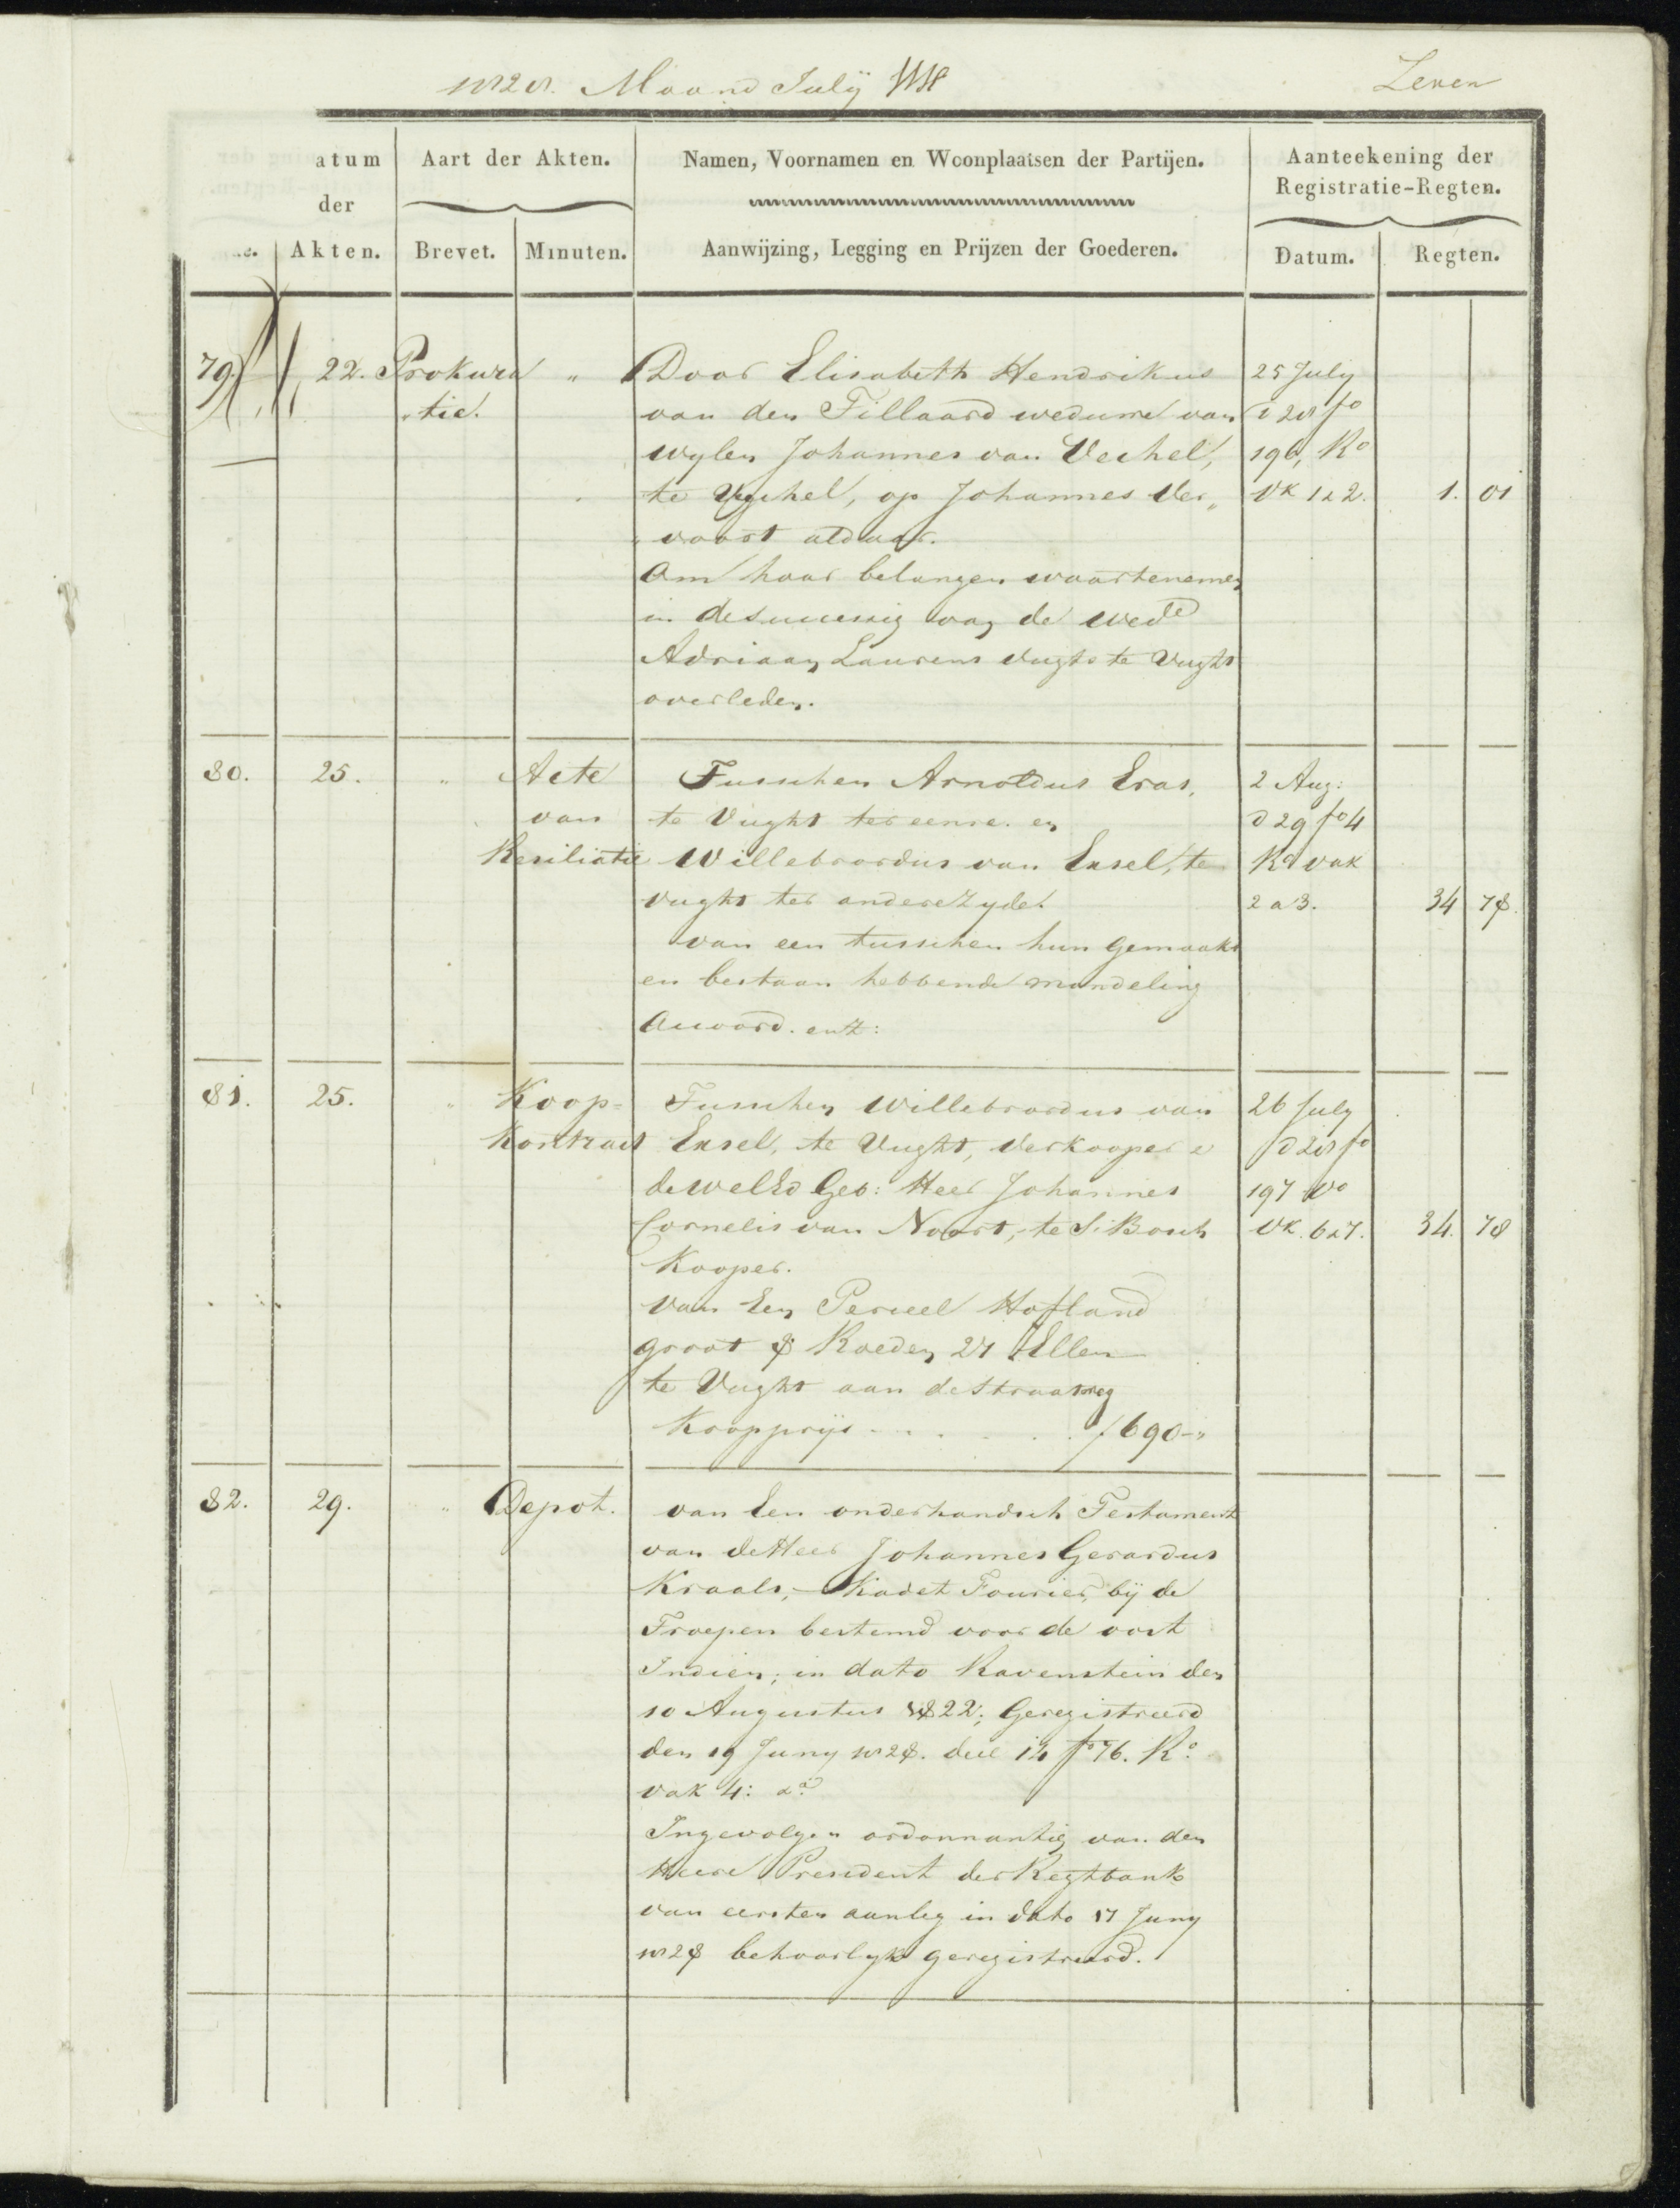 1828. Maand Julij
Zeven
atum
der
Akten.
Aart der Akten.
Brevet.
Minuten.
Namen, Voornamen en Woonplaatsen der Partijen.
Aanwijzing, Legging en Prijzen der Goederen.
Aanteekening der
Registratie-Regten.
Datum.
Regten.
79. 22. Prokura " Door Elisabeth Hendrikus 25 July
tie. van den Tillaard weduwe van d 28 fo
wylen Johannes van Vechel, 196, Ro
te Vechel, op Johannes Ver„ vk 1 a 2. 1. 01
voort aldaar.
Om haar belangen waartenemen
in de successie van de wede
Adriaan Laurens Vugts te Vught
overleden.
80. 25. " Acte Tusschen Arnoldus Eras, 2 Aug:
van te Vught ter eenre en d 29 fo 4
Resiliatie Willebrordus van Ensel, te Ro vak
Vught ter andere Zyde. 2 a 3. 34 78.
van een tusschen hun gemaakt
en bestaan hebbende mondeling
accoord. enz:
81. 25. " Koop- Tusschen Willebrordus van 26 July
Kontract Ensel, te Vught, Verkooper d 28 fo
de welEd Geb: Heer Johannes 197 Vo
Cornelis van Noort, te S. Bosch vk. 6 a 7. 34. 78
Kooper.
van Een Perceel Hofland
groot 8 Roeden 27 Ellen
te Vught aan de Straatweg
Koopprijs . . . . . f 690-"
82. 29. " Depot. van Een onderhandsch Testament
van de Heer Johannes Gerardus
Kraals, Kadet Fourier, bij de
Troepen bestemd voor de oost
Indien, in dato Ravenstein den
10 Augustus 1822; Geregistreerd
den 19 Juny 1828. deel 12 fo 76. Ro
vak 4:
Ingevolge ordonnantie van den
Heere President der Regtbank
van eersten aanleg in dato 17 Juny
1828 behoorlyk geregistreerd.